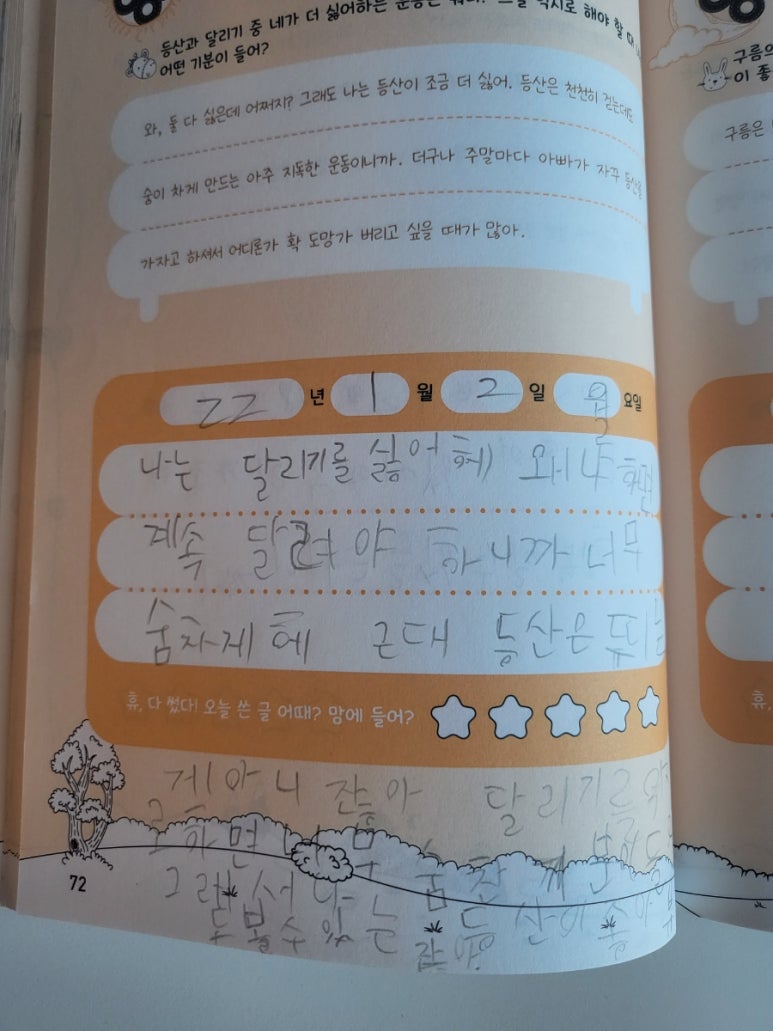 등산과 달리기 중 네가 더 싫어하는 운동은 뭐야? 해야 할 때
어떤 기분이 들어?
와, 둘 다 싫은데 어쩌지? 그래도 나는 등산이 조금 더 싫어. 등산은 천천히 걷는데도
숨이 차게 만드는 아주 지독한 운동이니까. 더구나 주말마다 아빠가 자꾸 등산을
가자고 하셔서 어디론가 확 도망가 버리고 싶을 때가 많아.
22 년 1 월 2 일 요일
나는 달리기를 싫어해 왜냐
계속 달려야 하니까 너무
숨차게 헤 근대 등산은
게 아니 잔아 달리기를
로 하면 너무 숨찬게
그래서 나는
볼수있는 등산이
잔아.
휴, 다 썼다! 오늘 쓴 글 어때? 맘에 들어?
72
구름의
이 좋
구름은
휴,